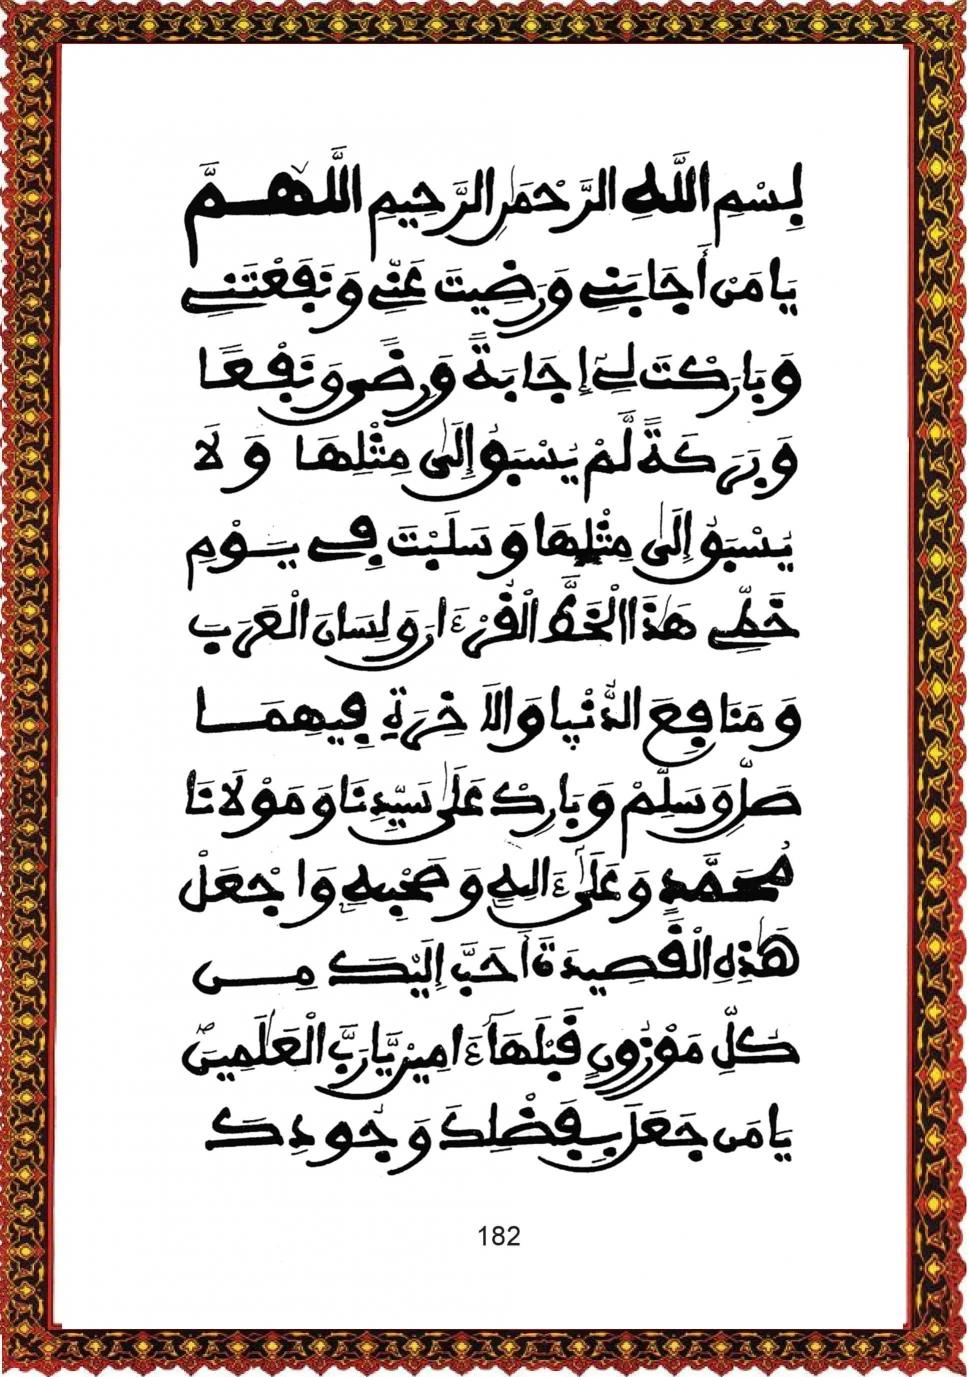 بِسْمِ اللَّهِ الرَّحْمَٰنِ الرَّحِيمِ اللَّهُمَّ
يَا مَنْ أَجَابَنِي وَرَضِيتَ عَنِّي وَنَفَعْتَنِي
وَبَارَكْتَ لِي إِجَابَةً وَرِضًى وَنَفْعًا
وَبَرَكَةً لَّمْ يُسْبَقْ إِلَىٰ مِثْلِهَا وَلَا
يُسْبَقُ إِلَىٰ مِثْلِهَا وَسَلَبْتَ فِي يَوْمِ
خَطِّي هَٰذَا الْخَطِّ الْقُرْءَانَ وَلِسَانَ الْعَرَبِ
وَمَنَافِعَ الدُّنْيَا وَالْآخِرَةِ فِيهِمَا
صَلِّ وَسَلِّمْ وَبَارِكْ عَلَىٰ سَيِّدِنَا وَمَوْلَانَا
مُحَمَّدٍ وَعَلَىٰ ءَالِهِ وَصَحْبِهِ وَاجْعَلْ
هَٰذِهِ الْقَصِيدَةَ أَحَبَّ إِلَيْكَ مِن
كُلِّ مَوْزُونٍ قَبْلَهَا ءَامِينَ يَا رَبَّ الْعَٰلَمِينَ
يَا مَن جَعَلَ بِفَضْلِكَ وَجُودِكَ
182